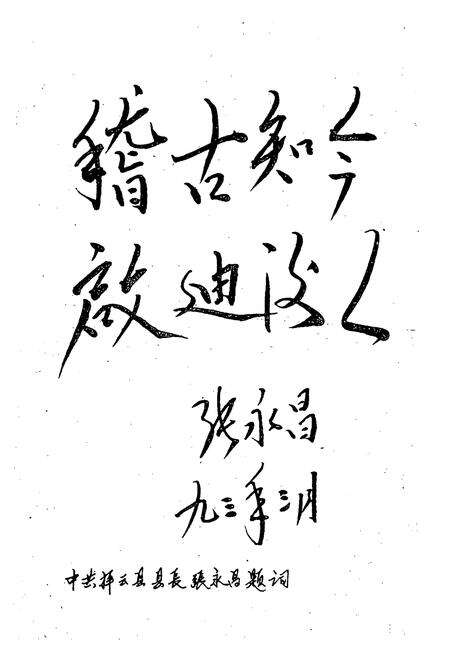 稽古知今
启迪后人
张永昌
九三年三月
中共祥云县县长張永昌题词